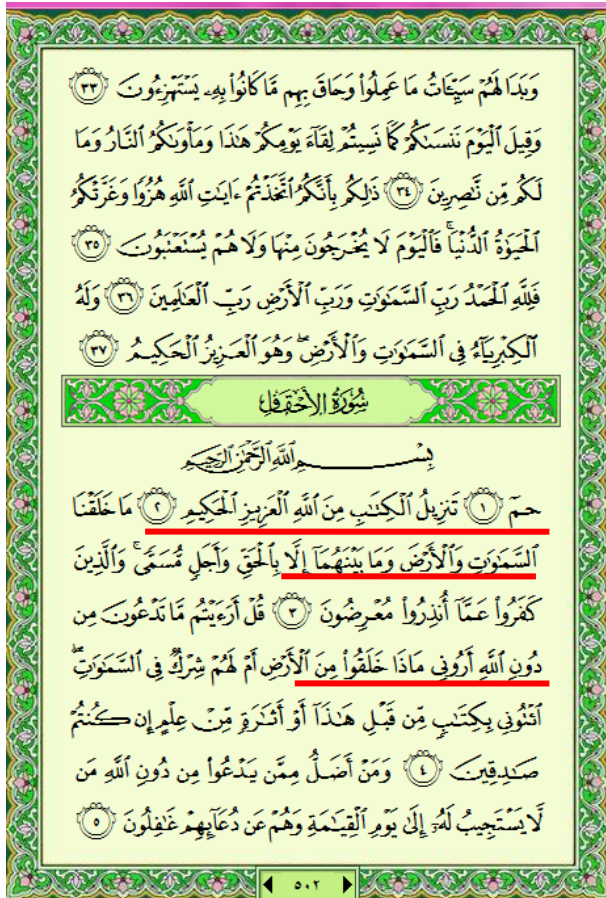 وَبَدَا لَهُمْ سَيِّـَٔاتُ مَا عَمِلُوا۟ وَحَاقَ بِهِم مَّا كَانُوا۟ بِهِۦ يَسْتَهْزِءُونَ ٣٣
وَقِيلَ ٱلْيَوْمَ نَنسَىٰكُمْ كَمَا نَسِيتُمْ لِقَآءَ يَوْمِكُمْ هَٰذَا وَمَأْوَىٰكُمُ ٱلنَّارُ وَمَا
لَكُم مِّن نَّٰصِرِينَ ٣٤ ذَٰلِكُم بِأَنَّكُمُ ٱتَّخَذْتُمْ ءَايَٰتِ ٱللَّهِ هُزُوًا وَغَرَّتْكُمُ
ٱلْحَيَوٰةُ ٱلدُّنْيَا ۚ فَٱلْيَوْمَ لَا يُخْرَجُونَ مِنْهَا وَلَا هُمْ يُسْتَعْتَبُونَ ٣٥
فَلِلَّهِ ٱلْحَمْدُ رَبِّ ٱلسَّمَٰوَٰتِ وَرَبِّ ٱلْأَرْضِ رَبِّ ٱلْعَٰلَمِينَ ٣٦ وَلَهُ
ٱلْكِبْرِيَآءُ فِى ٱلسَّمَٰوَٰتِ وَٱلْأَرْضِ ۖ وَهُوَ ٱلْعَزِيزُ ٱلْحَكِيمُ ٣٧
سُورَةُ الأَحْقَافِ
بِسْمِ ٱللَّهِ ٱلرَّحْمَٰنِ ٱلرَّحِيمِ
حمٓ ١ تَنزِيلُ ٱلْكِتَٰبِ مِنَ ٱللَّهِ ٱلْعَزِيزِ ٱلْحَكِيمِ ٢ مَا خَلَقْنَا
ٱلسَّمَٰوَٰتِ وَٱلْأَرْضَ وَمَا بَيْنَهُمَآ إِلَّا بِٱلْحَقِّ وَأَجَلٍ مُّسَمًّى ۚ وَٱلَّذِينَ
كَفَرُوا۟ عَمَّآ أُنذِرُوا۟ مُعْرِضُونَ ٣ قُلْ أَرَءَيْتُم مَّا تَدْعُونَ مِن
دُونِ ٱللَّهِ أَرُونِى مَاذَا خَلَقُوا۟ مِنَ ٱلْأَرْضِ أَمْ لَهُمْ شِرْكٌ فِى ٱلسَّمَٰوَٰتِ ۖ
ٱئْتُونِى بِكِتَٰبٍ مِّن قَبْلِ هَٰذَآ أَوْ أَثَٰرَةٍ مِّنْ عِلْمٍ إِن كُنتُمْ
صَٰدِقِينَ ٤ وَمَنْ أَضَلُّ مِمَّن يَدْعُوا۟ مِن دُونِ ٱللَّهِ مَن
لَّا يَسْتَجِيبُ لَهُۥٓ إِلَىٰ يَوْمِ ٱلْقِيَٰمَةِ وَهُمْ عَن دُعَآئِهِمْ غَٰفِلُونَ ٥
٥٠٢